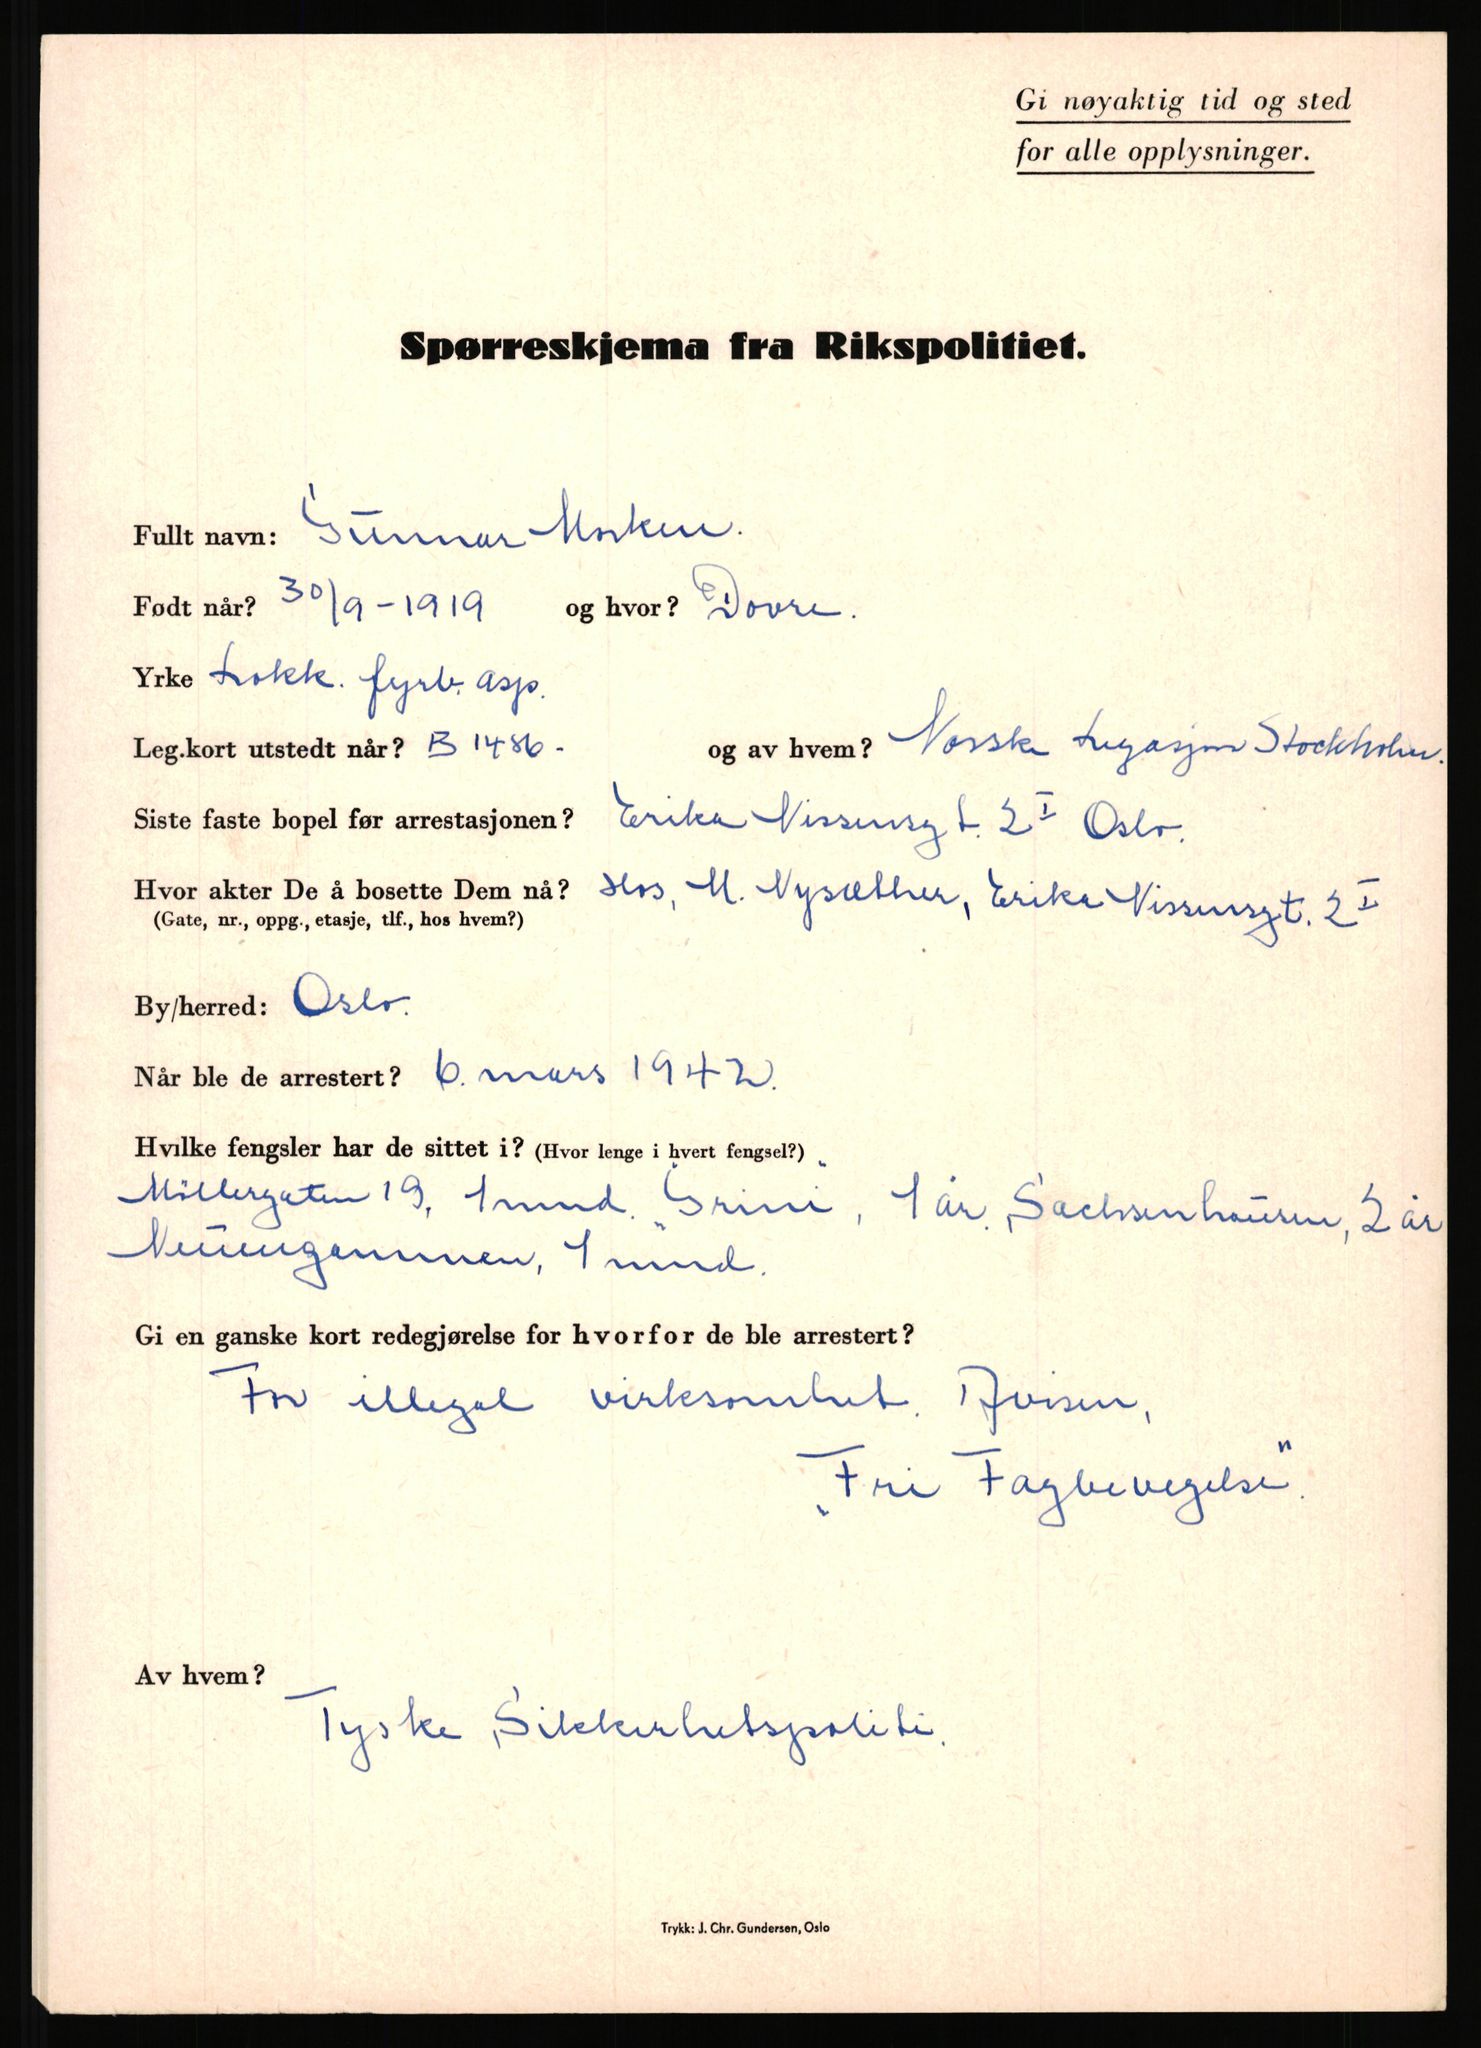 Gi nøyaktig tid og sted
for alle opplysninger.
Spørreskjema fra Rikspolitiet.
Fullt navn: Gunnar Morken.
Født når? 30/9-1919 og hvor? Dovre.
Yrke Lokk. fyrb. asp.
Leg.kort utstedt når? B 1486- og av hvem? Norske Legasjon Stockholm.
Siste faste bopel før arrestasjonen? Erika Nissensgt. 2 I Oslo.
Hvor akter De å bosette Dem nå? Hos, M. Nysæther, Erika Nissensgt. 2 I
(Gate, nr., oppg., etasje, tlf., hos hvem?)
By/herred: Oslo.
Når ble de arrestert? 6. mars 1942.
Hvilke fengsler har de sittet i? (Hvor lenge i hvert fengsel?)
Möllergaten 19, 1 mnd. „Grini", 1 år. Sachsenhausen, 2 år
Neuengammen, 1 mnd.
Gi en ganske kort redegjørelse for hvorfor de ble arrestert?
For illegal virksomhet. Avisen,
„Fri Fagbevegelse".
Av hvem?
Tyske Sikkerhetspoliti.
Trykk: J. Chr. Gundersen, Oslo